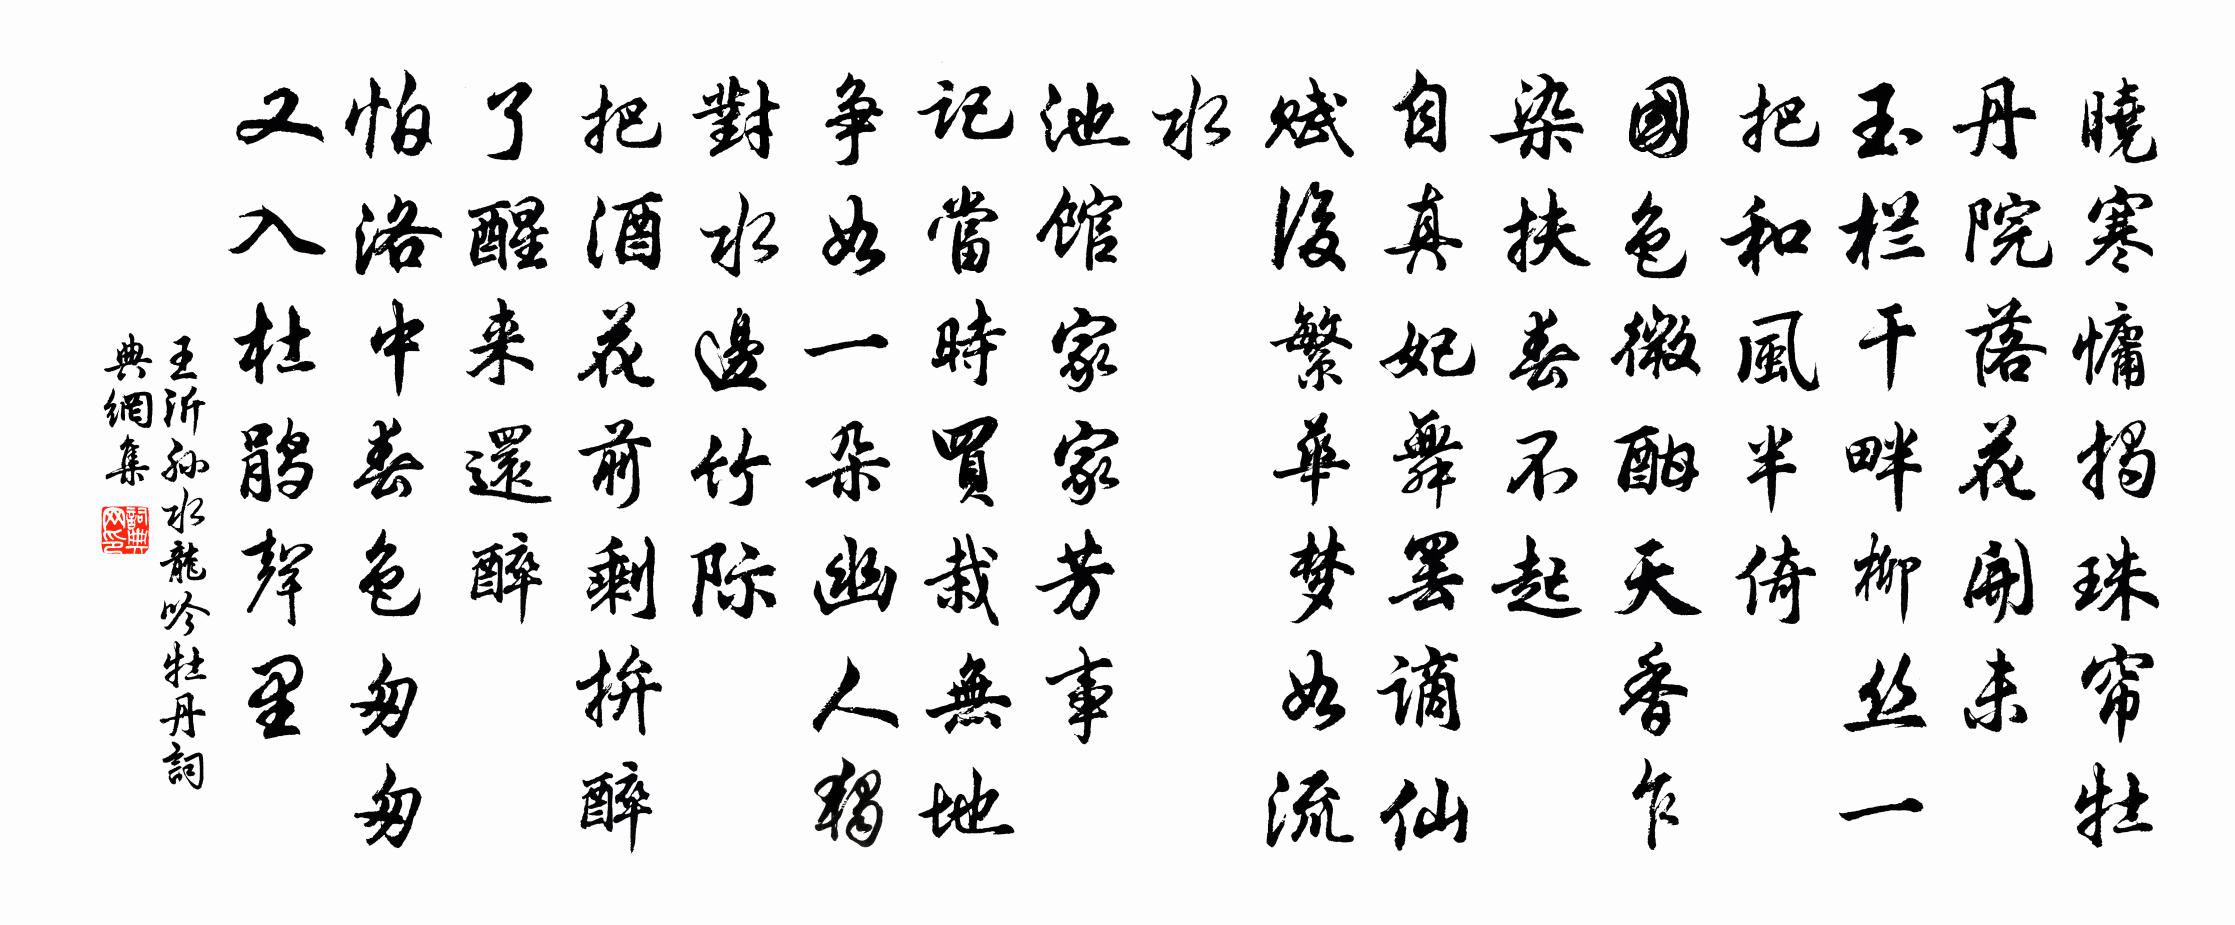 曉寒慵揭珠帘牡
丹院落花開未
玉栏干畔柳丝一
把和風半倚
國色微酣天香乍
染扶春不起
自真妃舞罢谪仙
赋後繁華梦如流
水
池馆家家芳事
记當時買栽無地
争如一朵幽人獨
對水邊竹际
把酒花前剩拚醉
了醒来還醉
怕洛中春色匆匆
又入杜鹃聲里
王沂孙水龍吟牡丹詞
典網集
詞典网印